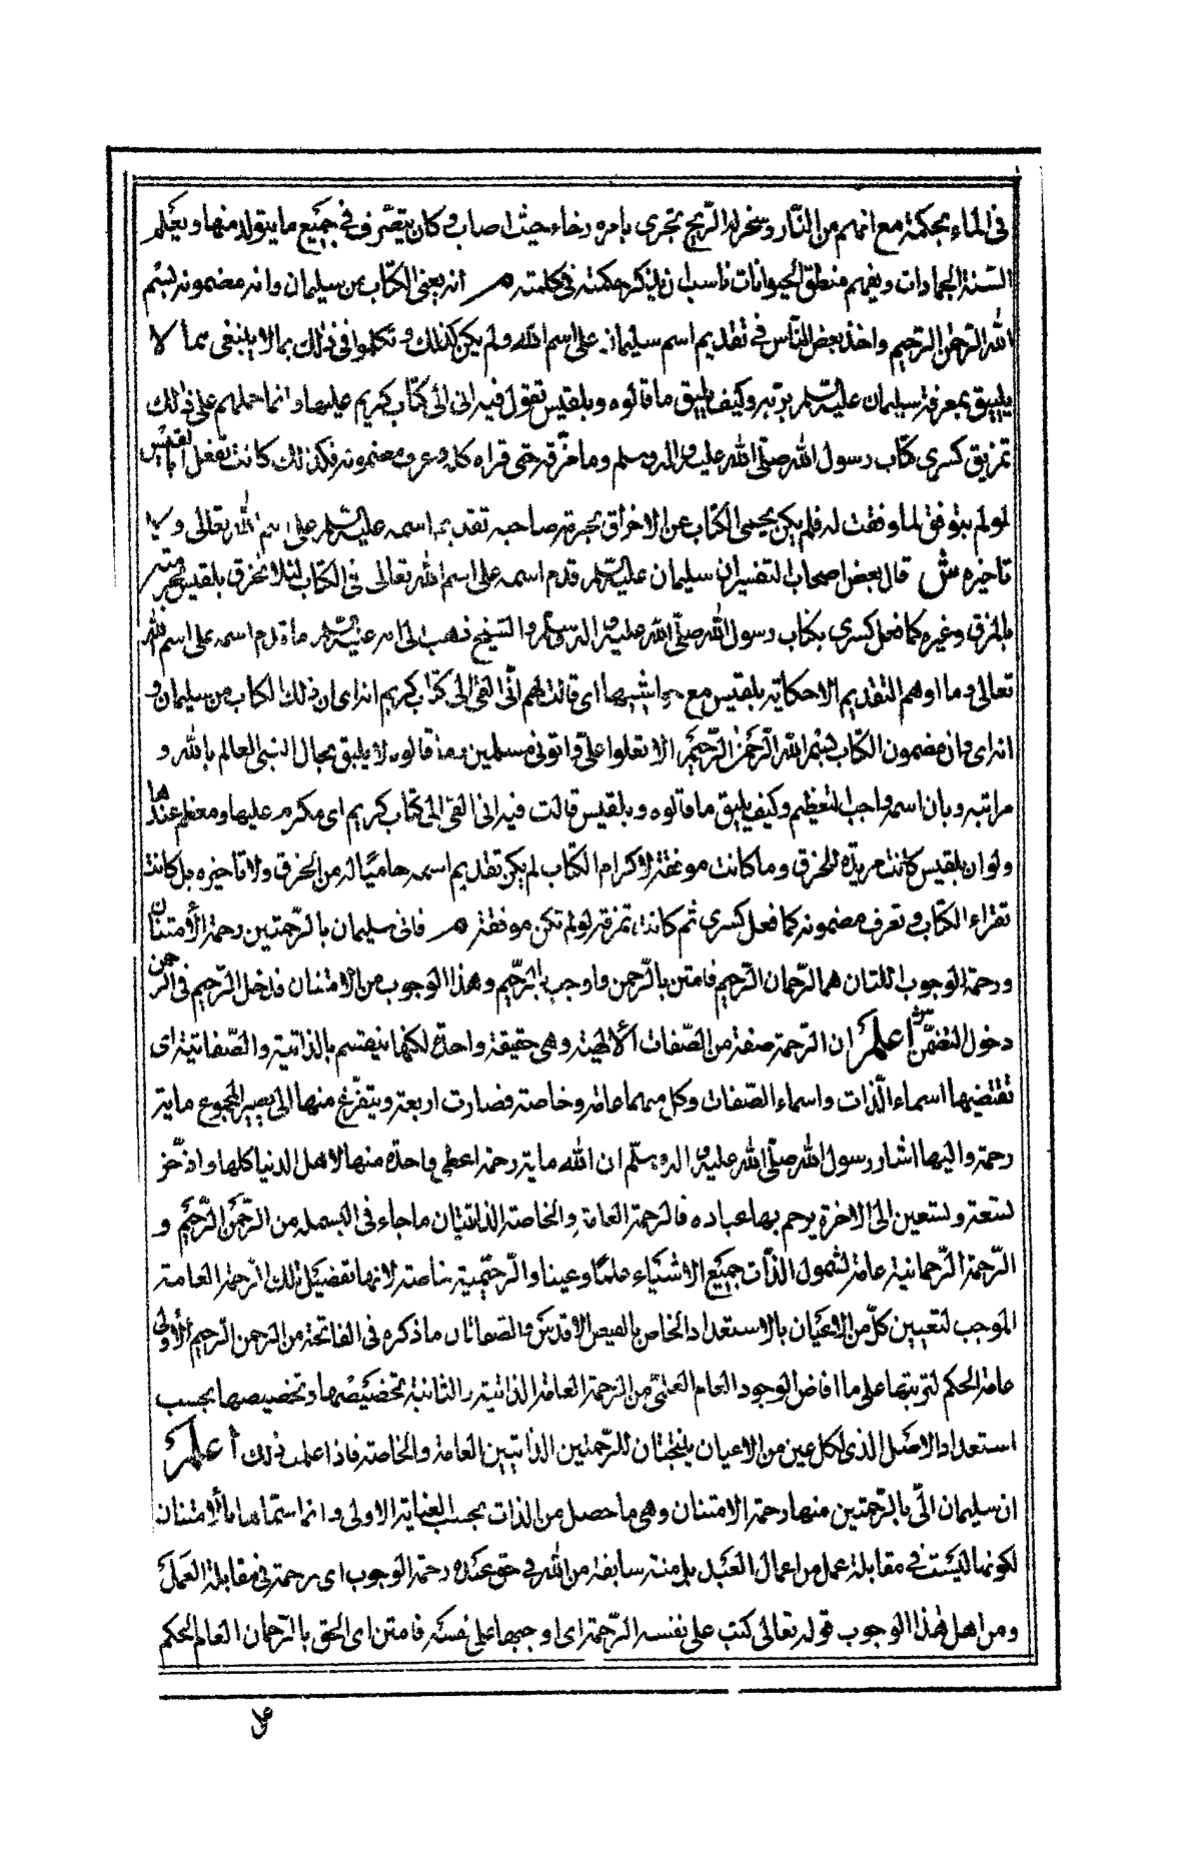 فى الماء بحكمة مع انهم من النّار وسخر له الرّيح تجرى بامره رخاء حيث اصاب وكان يتصّرف فى جميع ما يتولد منها ويعلم
السنة الجمادات ويفهم منطق الحيوانات ناسب ان يذكر حكمته فى كلمته م انه يعنى الكتاب من سليمان وانه مضمونه بسم
الله الرّحمن الرّحيم واخذ بعض النّاس فى تقديم اسم سليمان على اسم الله ولم يكن كذلك وتكلموا فى ذلك بما لا ينبغى مما لا
يليق بمعرفة سليمان عليه السّلم بربّه وكيف يليق ما قالوه وبلقيس تقول فيه انى القى الىّ كتاب كريم عليها وانما حملهم على ذلك
تمزيق كسرى كتاب رسول الله صلّى الله عليه واله وسلم وما مزّقه حتى قراه كله وعرف مضمونه فكذلك كانت تفعل بلقيس
لو لم يتوفق لما وفقت له فلم يكن يحمى الكتاب عن الاخراق بحرمة صاحبه تقديم اسمه عليه السّلم على اسم الله تعالى ولا
تاخيره ش قال بعض اصحاب التفسير ان سليمان عليه السّلم قدم اسمه على اسم الله تعالى فى الكتاب لئلا تخرق بلقيس حرمته
بالخرق وغيره كما فعل كسرى بكتاب رسول الله صلّى الله عليه واله وسلم والشيخ ذهب الى انه عليه السّلم ما قدم اسمه على اسم الله
تعالى وما اوهم التقديم الا حكاية بلقيس مع حواشيها اى قالت لهم انّى القى الىّ كتاب كريم انه اى ان ذلك الكتاب من سليمان و
انه اى وان مضمون الكتاب بسم الله الرّحمن الرّحيم الا تعلوا علىّ واتونى مسلمين وما قالوه لا يليق بحال النبى العالم بالله و
مراتبه وبان اسمه واجب التعظيم وكيف يليق ما قالوه وبلقيس قالت فيه انى القى الى كتاب كريم اى مكرم عليها ومعظم عندها
ولو ان بلقيس كانت مريدة للخرق وما كانت موفقة لاكرام الكتاب لم يكن تقديم اسمه حاميًا له من الخرق ولا تاخيره بل كانت
تقراء الكتاب وتعرف مضمونه كما فعل كسرى ثم كانت تمزقه لو لم تكن موفقة م فاتى سليمان بالرّحمتين رحمة الامتنان
ورحمة الوجوب اللتان هما الرّحمان الرّحيم فامتن بالرّحمن واوجب بالرّحيم وهذا الوجوب من الامتنان فدخل الرّحيم فى الرّحمن
دخول التضمّن ش اعلم ان الرّحمة صفة من الصّفات الالهية وهى حقيقة واحدة لكنها ينقسم بالذاتية والصّفاتية اى
تقتضيها اسماء الذّات واسماء الصّفات وكل منهما عامة وخاصة فصارت اربعة ويتفرّع منها الى يصير المجموع ماية
رحمة واليها اشار رسول الله صلّى الله عليه واله وسلّم ان الله ماية رحمة اعطى واحدة منها لاهل الدنيا كلها وادّخر
تسعة وتسعين الى الاخرة يرحم بها عباده فالرحمة العامة والخاصة الذاتيتان ما جاء فى البسملة من الرّحمن الرّحيم و
الرّحمة الرّحمانية عامة لشمول الذّات جميع الاشياء علمًا وعينا والرّحيمية خاصة لانها تفصيل تلك الرّحمة العامة
الموجب لتعيين كلّ من الاعيان بالاستعداد الخاص بالفيض الاقدس والصفاتان ما ذكره فى الفاتحة من الرّحمن الرّحيم الاولى
عامة الحكم لترتبها على ما افاض الوجود العام العلمىّ من الرّحمة العامة الذاتية والثانية تخصيصها وتخصيصها بحسب
استعداد الاصل الذى لكل عين من الاعيان ينتجتان للرّحمتين الذاتيتين العامة والخاصة فاذا علمت ذلك اعلم
ان سليمان اتى بالرّحمتين منها رحمة الامتنان وهى ما حصل من الذات بحسب العناية الاولى وانما سمّاها بالامتنان
لكونها ليست فى مقابلة عمل من اعمال العبد بل منة سابقة من الله فى حق عبده ورحمة الوجوب اى رحمة فى مقابلة العمل
ومن اهل هذا الوجوب قوله تعالى كتب على نفسه الرّحمة اى اوجبها على نفسه فامتن اى الحق بالرّحمان العام الحكم
على